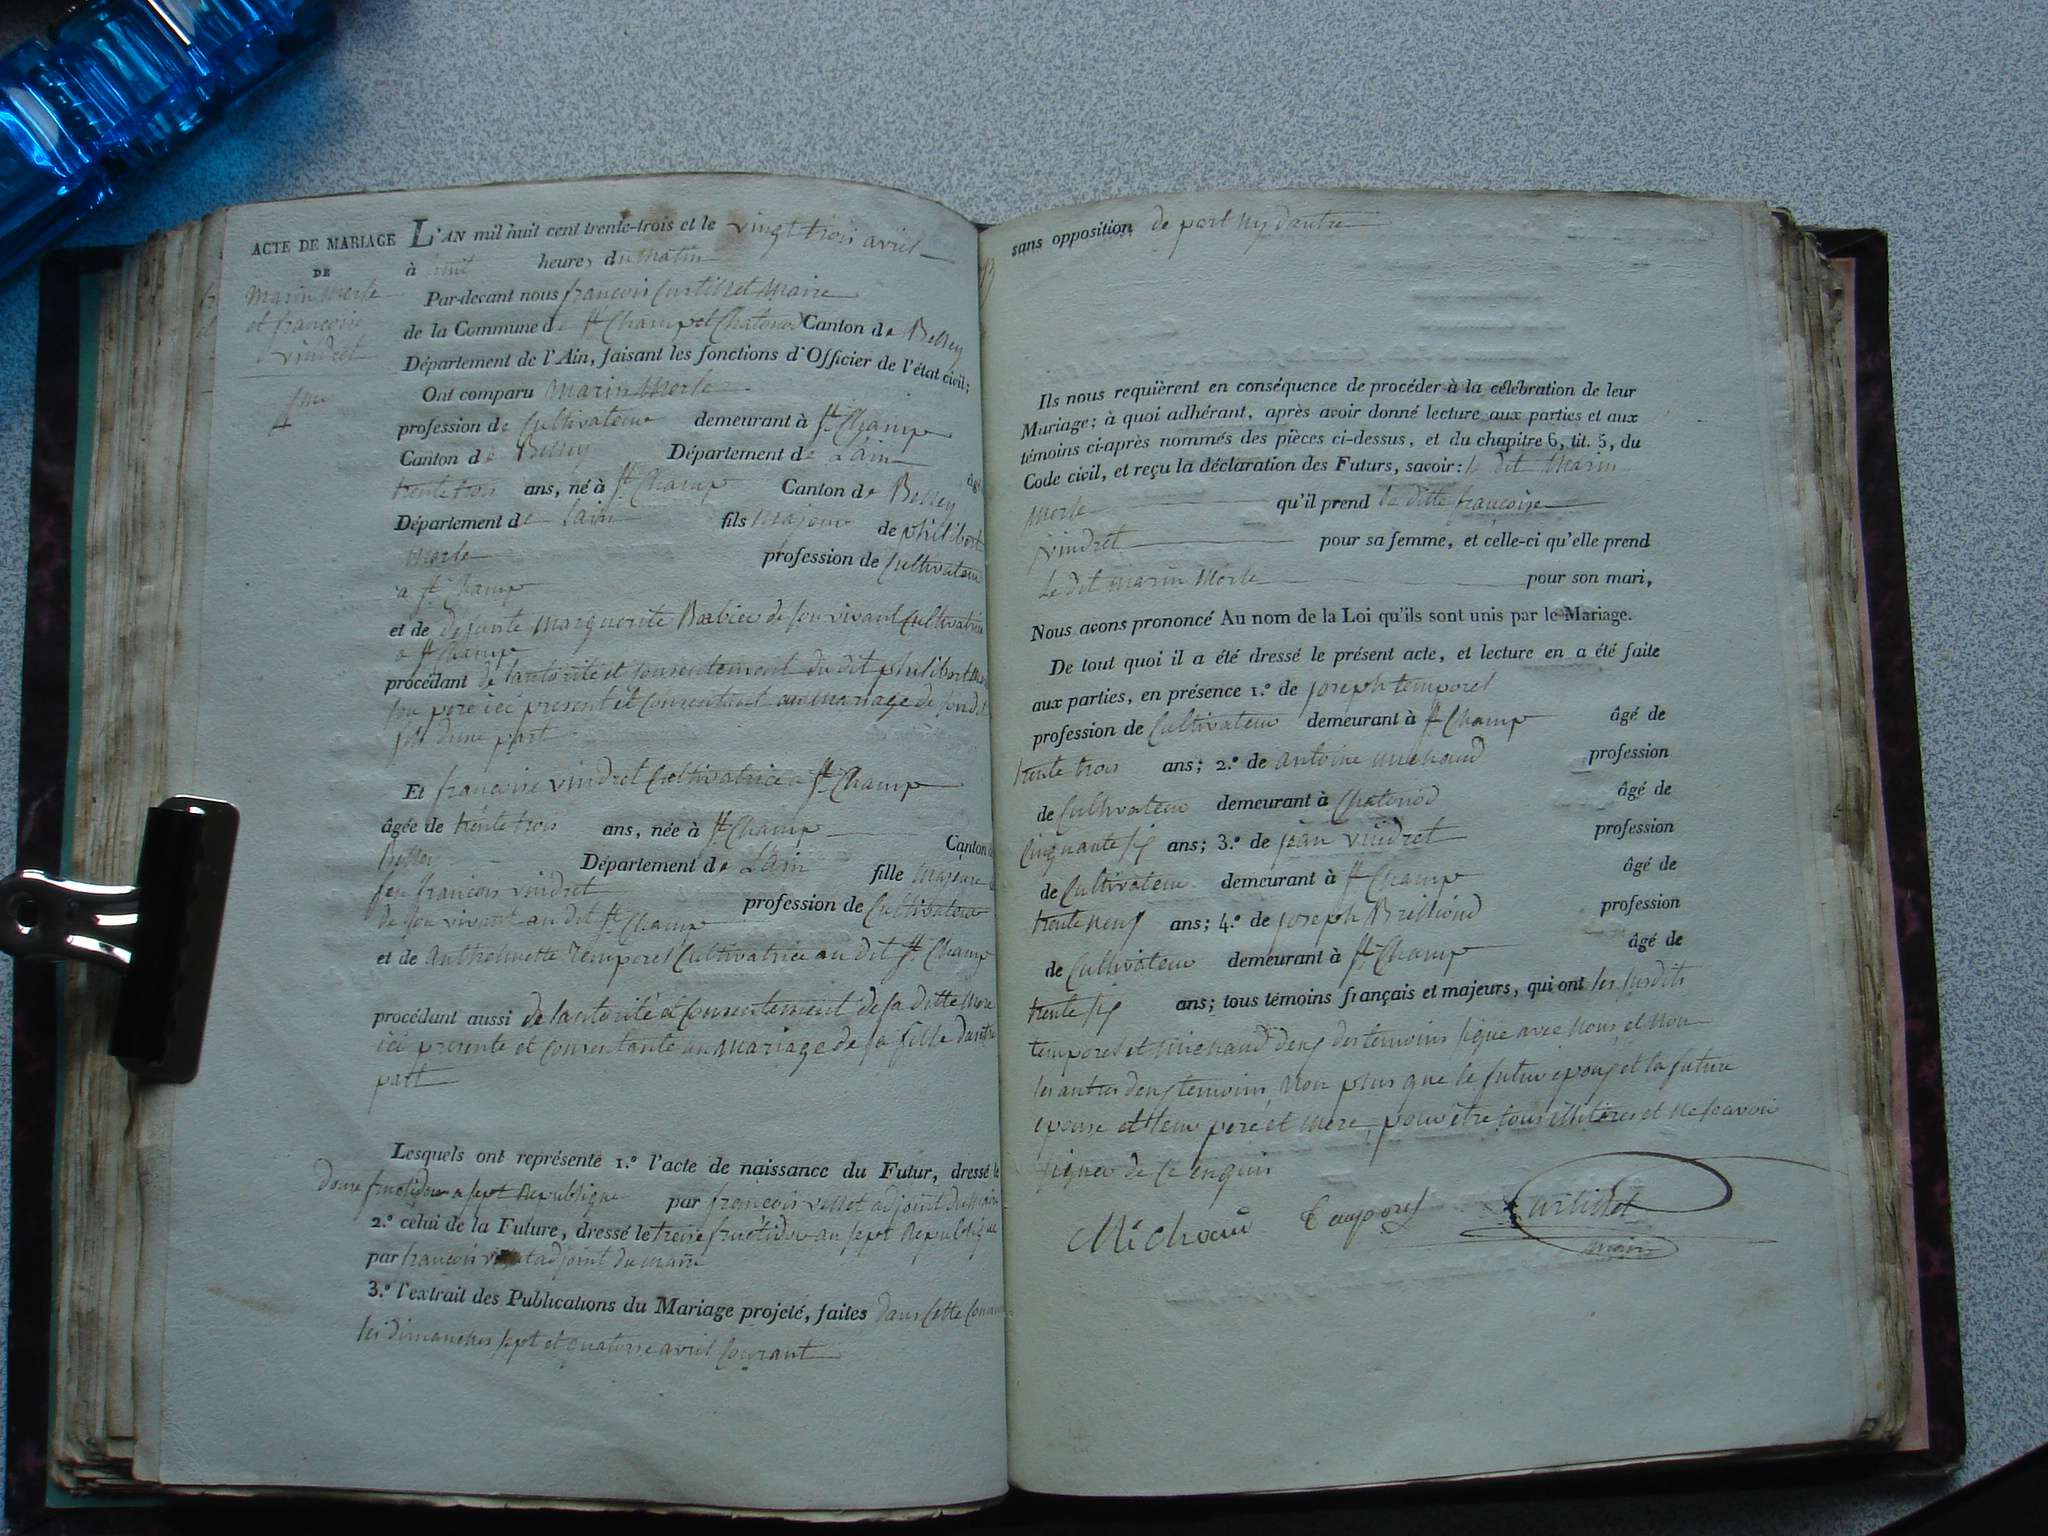 ACTE DE MARIAGE
DE
Marin Merle
et françoise
vindret
L'AN mil huit cent trente-trois et le vingt trois avril
à huit heures du matin
Par-devant nous françois Curtillet Maire
de la Commune de St Champ et Chatonod Canton de Belley
Département de l'Ain, faisant les fonctions d'Officier de l'état civil;
Ont comparu Marin Merle
profession de Cultivateur demeurant à St Champ
Canton de Belley Département de L'ain âgé
trente trois ans, né à St Champ Canton de Belley
Département de Lain fils majeur de philibert
Merle profession de Cultivateur
a St Champ
et de defunte Marguerite Barbier de son vivant Cultivatrice
a St Champ
procédant de lautorité et consentement du dit philibert
son pere ici present et Consentant au mariage de son dit
fils dune part
Et françoise vindret Cultivatrice a St Champ
âgée de trente trois ans, née à St Champ Canton de
Belley Département de L'ain fille majeure de
feu françois vindret profession de Cultivateur
de son vivant au dit St Champ
et de Anthelmette Temporel Cultivatrice au dit St Champ
procédant aussi de lautorité et Consentement de sa ditte Mere
ici presente et Consentante au Mariage de sa fille dautre
part
Lesquels ont représenté 1.º l'acte de naissance du Futur, dressé le
douze fructidor an sept Republique par françois vettet adjoint du Maire
2.º celui de la Future, dressé le treize fructidor an sept Republique
par francois adjoint du maire
3.º l'extrait des Publications du Mariage projeté, faites dans Cette Commune
les dimanches sept et quatorze avril Courant
sans opposition de part ny dautre
Ils nous requièrent en conséquence de procéder à la célébration de leur
Mariage; à quoi adhérant, après avoir donné lecture aux parties et aux
témoins ci-après nommés des pièces ci-dessus, et du chapitre 6, tit. 5, du
Code civil, et reçu la déclaration des Futurs, savoir: le dit Marin
Merle qu'il prend la ditte françoise
vindret pour sa femme, et celle-ci qu'elle prend
Le dit marin Merle pour son mari,
Nous avons prononcé Au nom de la Loi qu'ils sont unis par le Mariage.
De tout quoi il a été dressé le présent acte, et lecture en a été faite
aux parties, en présence 1.º de joseph temporel
profession de Cultivateur demeurant à St Champ âgé de
trente trois ans; 2.º de antoine michaud profession
de Cultivateur demeurant à Chatonod âgé de
Cinquante six ans; 3.º de jean vindret profession
de Cultivateur demeurant à St Champ âgé de
trente neuf ans; 4.º de joseph Brilliond profession
de Cultivateur demeurant à St Champ âgé de
trente six ans; tous témoins français et majeurs, qui ont les susdits
temporel et Michaud deux des temoins signe avec Nous et Non
les autres deux temoins, Non plus que le futur epoux et la future
epouse et leur pere et mere, pour être tous illiteres et Ne scavoir
signer de Ce enquis
Michaud Temporel Curtillet
maire